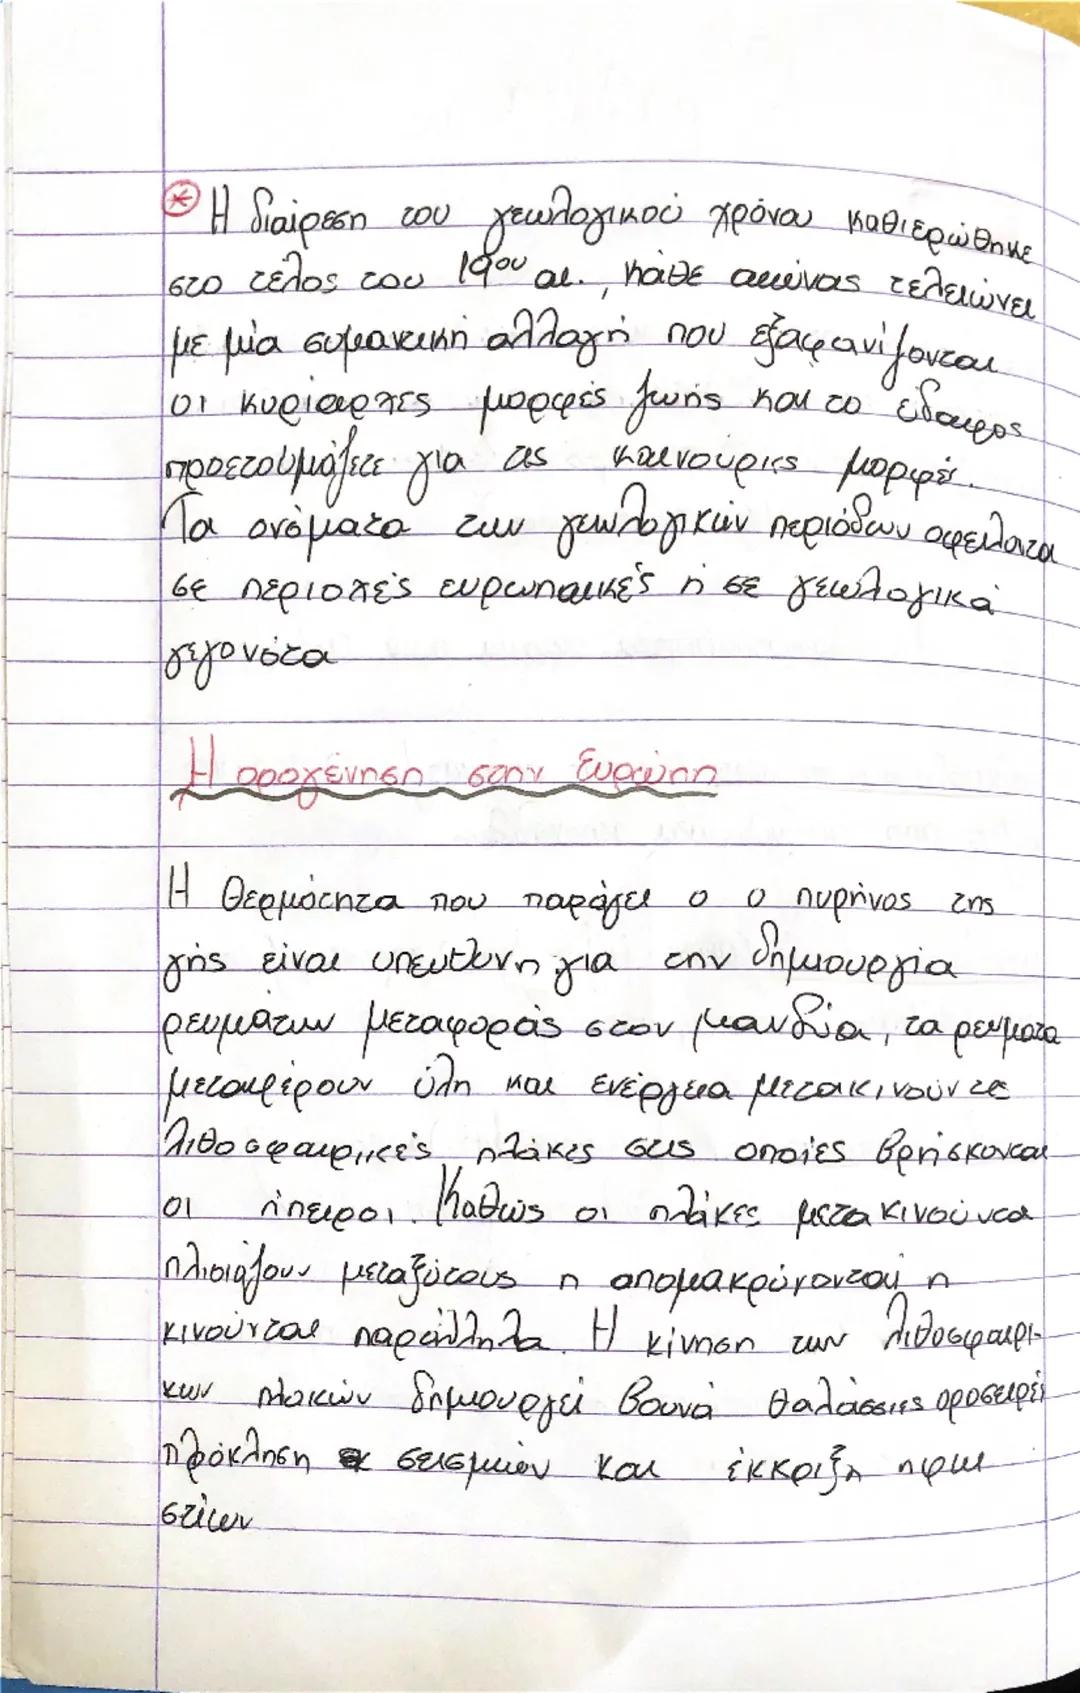 * Η διαίρεση του γεωλογικού χρόνου καθιερώθηκε
στο τέλος του 19ου αι., κάθε αιώνας τελειώνει
με μία συμαντική αλλαγή που εξαφανίζονται
οι κυρίαρχες μορφές ζωής και το έδαφος
προετοιμάζετε για τις καινούριες μορφές.
Τα ονόματα των γεωλογικών περιόδων οφείλονται
σε περιοχές ευρωπαικές ή σε γεωλογικά
γεγονότα
Η ορογένηση στην Ευρώπη
Η θερμότητα που παράγει ο ο πυρήνας της
γής είναι υπευθυνη για την δημιουργία
ρευμάτων μεταφοράς στον μανδύα, τα ρευματα
μεταφέρουν ύλη και ενέργεια μετακινούντε
λιθοσφαιρικές πλάκες στις οποίες βρήσκονται
οι ήπειροι. Καθώς οι πλάκες μετακινούντα
πλισιάζουν μεταξύτους η απομακρύνονται η
κινούνται παράλληλα. Η κίνηση των λιθοσφαιρι-
κων πλακών δημιουργεί βουνά θαλάσσιες οροσειρέ
πρόκληση σεισμών και έκκριξη ηφαι
στίων